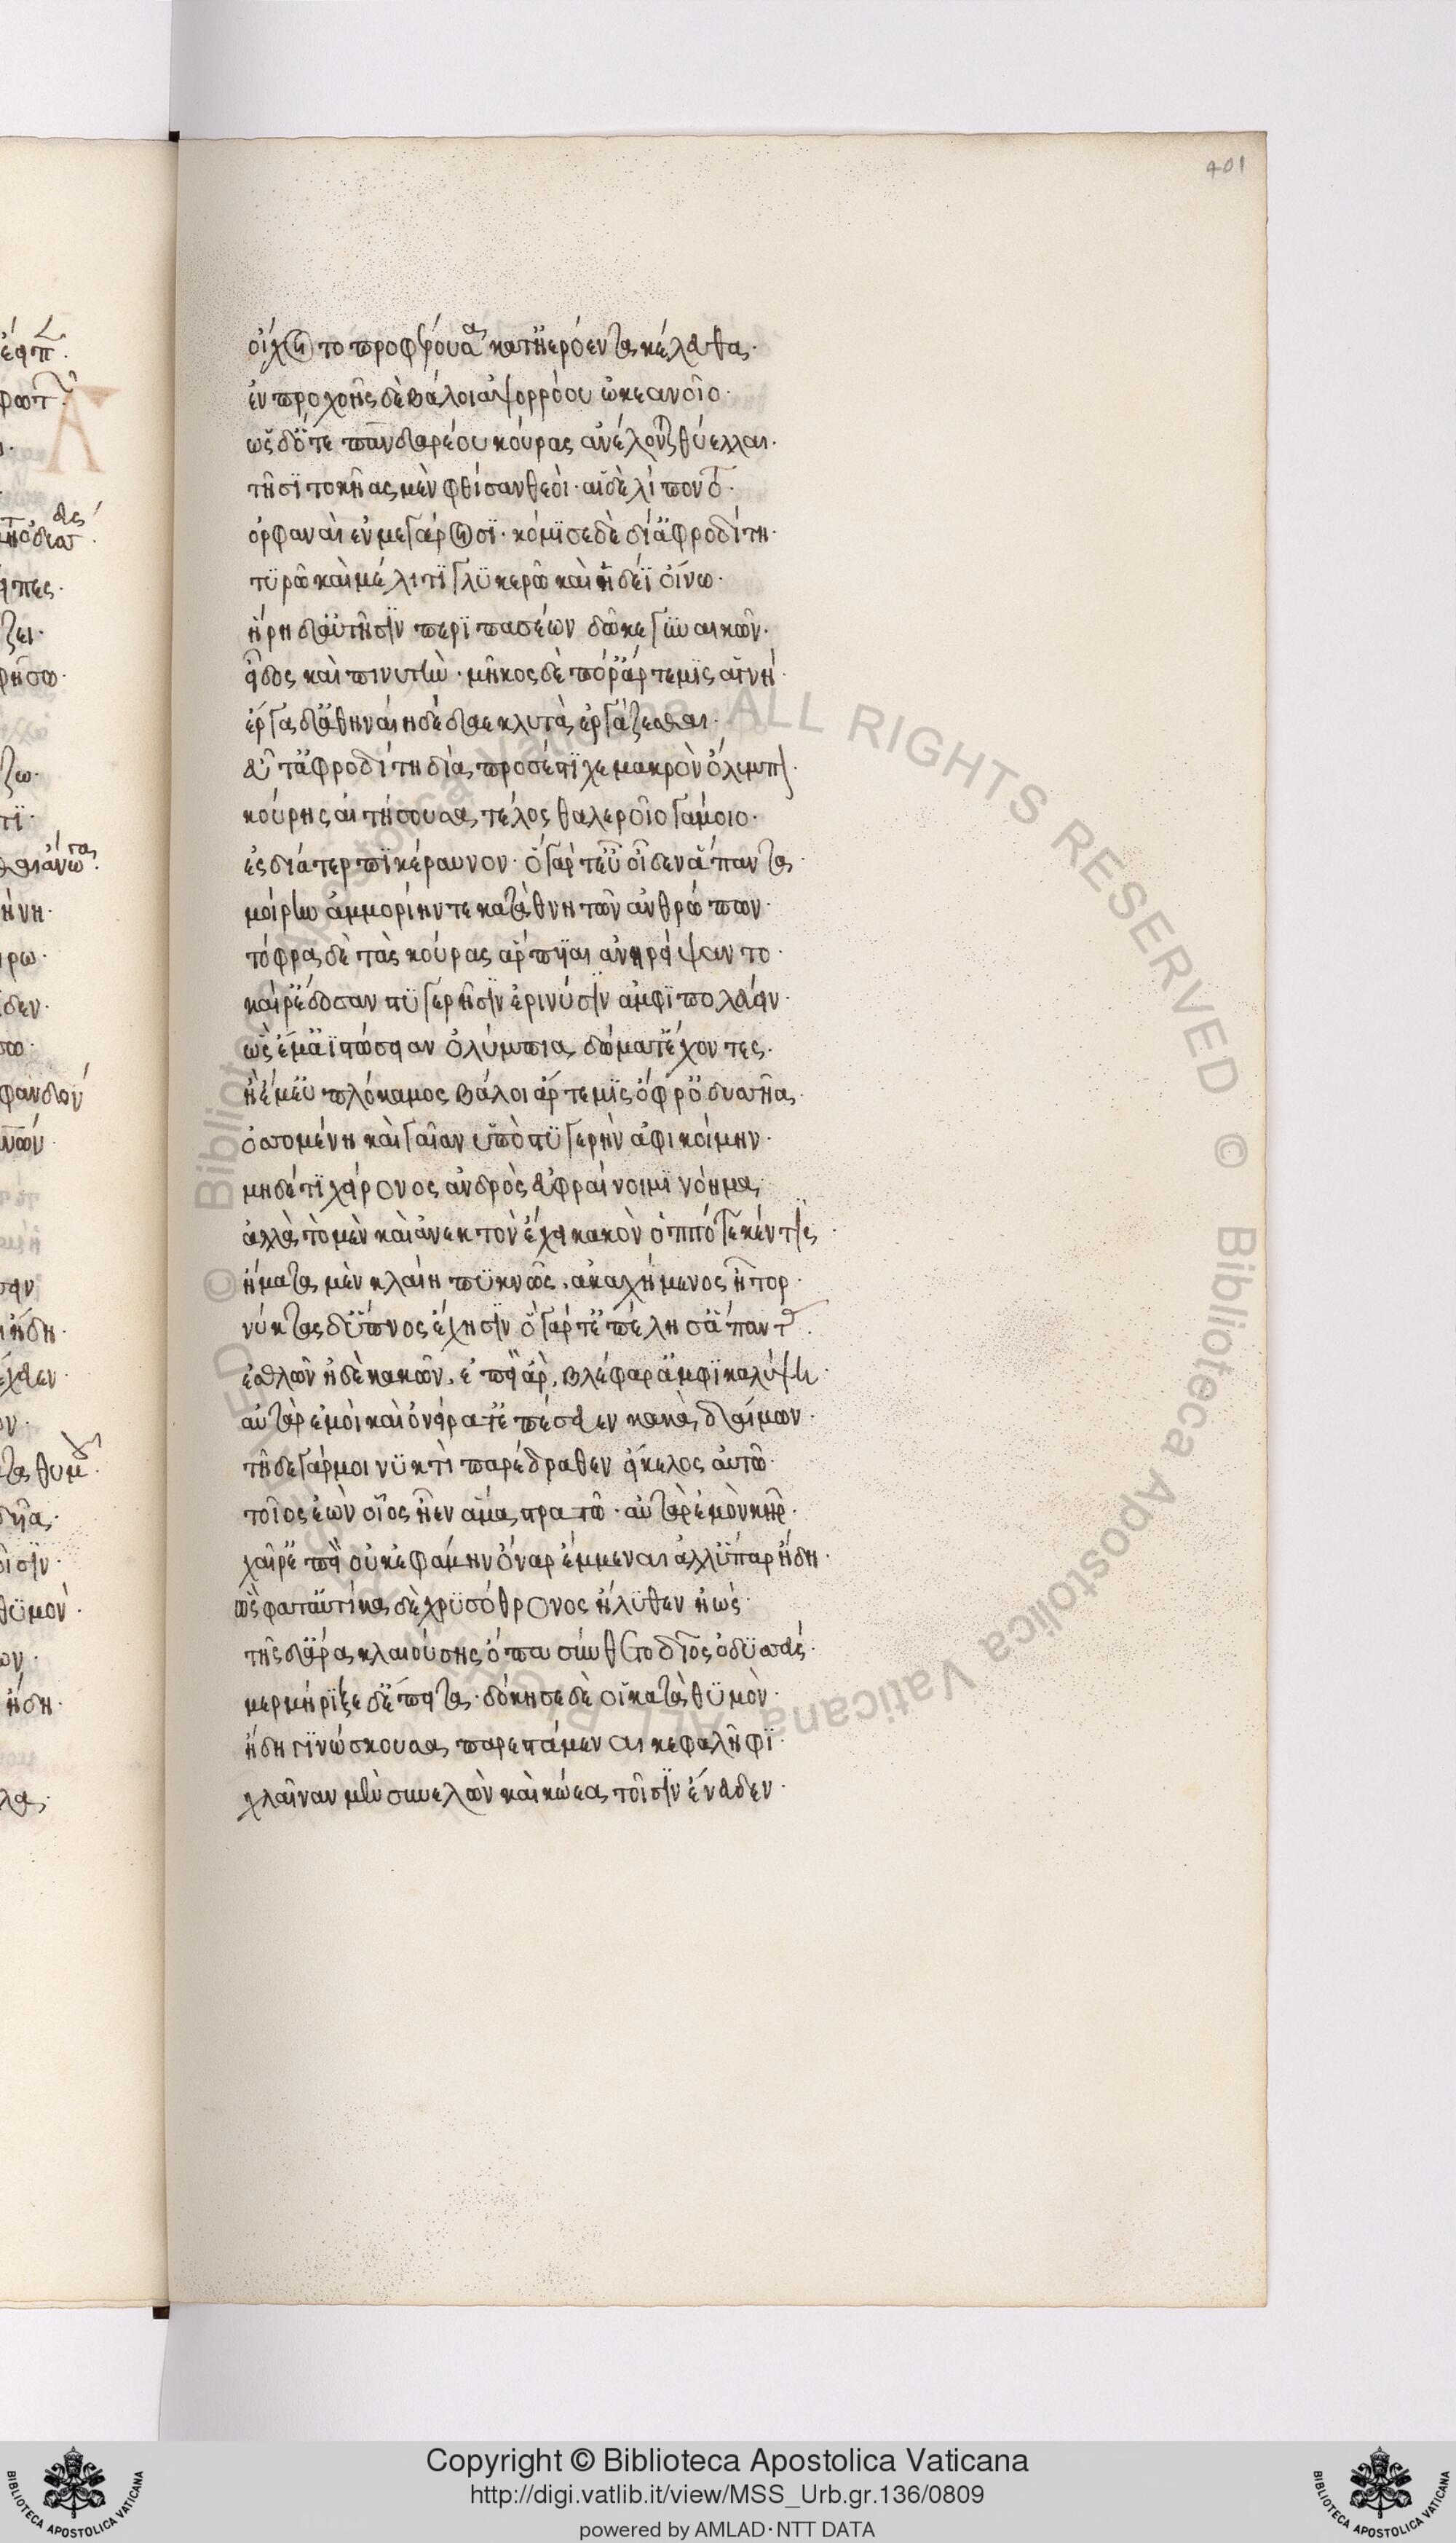 401
οἴχοιτο προφέρουσα κατ' ἠερόεντα κέλευθα.
ἐν προχοῆς δὲ βάλοι ἀψορρόου ὠκεανοῖο.
ὡς δ' ὅτε πανδαρέου κούρας ἀνέλοντο θύελλαι.
τῆσϊ τοκῆας μὲν φθίσαν θεοὶ. αἱ δὲ λίποντο.
ὀρφαναὶ ἐν μεγάροισϊ. κόμϊσε δὲ δῖ' ἀφροδίτη.
τϋρῶ καὶ μέλιτϊ γλϋκερῶ καὶ ἡδέϊ οἴνω.
ἥρη δ' αὐτῆσϊν περϊ πασέων δῶκε γϋναικῶν.
εἶδος καὶ πινυτὴν. μῆκος δὲ πόρ' ἄρτεμϊς ἁγνή.
ἔργα δ' ἀθηναίη δέδαε κλυτὰ ἐργάζεσθαι.
εὖτ' ἀφροδίτη δῖα προσέστϊχε μακρὸν ὄλυμπον
κούρης αἰτήσουσα τέλος θαλεροῖο γάμοιο.
ἐς δία τερπϊκέραυνον. ὁ γάρ τ' εὖ οἶδεν ἅπαντα.
μοίραν ἀμμορίην τε καταθνητῶν ἀνθρώπων.
τόφρα δὲ τὰς κούρας ἅρπυιαι ἀνηρείψαντο.
καί ῥ' ἔδοσαν στϋγερῆσϊν ἐρινύσϊν ἀμφϊπολεύειν.
ὣς ἔμ' ἀϊστώσειαν ὀλύμπια δώματ' ἔχοντες.
ἠέ μ' ἐϋπλόκαμος βάλοι ἄρτεμϊς ὄφρ' ὀδυσῆα.
ὀσσομένη καὶ γαῖαν ὕπο στϋγερὴν ἀφικοίμην.
μηδέ τϊ χείρονος ἀνδρὸς εὐφραίνοιμϊ νόημα
ἀλλὰ τὸ μὲν καὶ ἀνεκτὸν ἔχει κακὸν ὁππότε κέν τϊς.
ἤματα μὲν κλαίη πϋκνῶς. ἀκαχήμενος ἦτορ.
νύκτας δ' ὕπνος ἔχησϊν ὁ γάρ τ' ἐπέλησ' ἁπάντων.
ἐσθλῶν ἠδὲ κακῶν. ἐπεὶ ἂρ. βλέφαρ' ἀμφϊκαλύψη.
αὐτὰρ ἐμοὶ καὶ ὀνείρατ' ἐπέσσευεν κακὰ δαίμων.
τῆδε γάρ μοι νϋκτὶ παρέδραθεν εἴκελος αὐτῶ.
τοῖος ἐὼν οἷος ἦεν ἅμα στρατῶ. αὐτὰρ ἐμὸν κῆρ.
χαῖρ' ἐπεὶ οὐκ ἐφάμην ὄναρ ἔμμεναι ἀλλ' ὕπαρ ἤδη.
ὣς φατ' αὐτίκα δὲ χρϋσόθρονος ἤλϋθεν ἠώς.
τῆς δ' ἄρα κλαιούσης ὄπα σύνθετο δῖος ὀδϋσσεύς.
μερμήρϊξε δ' ἔπειτα. δόκησε δὲ οἱ κατὰ θϋμὸν.
ἤδη γϊνώσκουσα παρεστάμεναι κεφαλῆφϊ.
χλαῖναν μὲν συνελὼν καὶ κώεα τοῖσϊν ἐνεῦδεν.
Copyright © Biblioteca Apostolica Vaticana
http://digi.vatlib.it/view/MSS_Urb.gr.136/0809
powered by AMLAD·NTT DATA